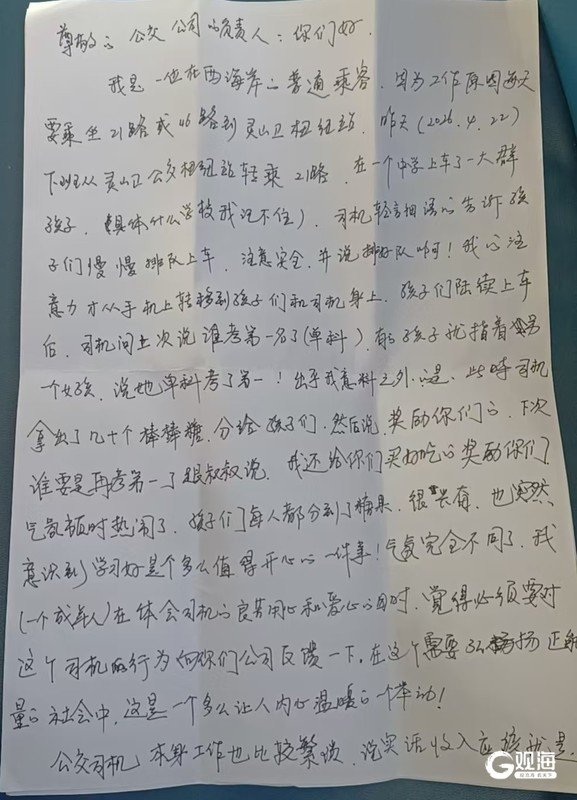 尊敬的公交公司的负责人:你们好.
我是一位在西海岸的普通乘客.因为工作原因每天
要乘坐21路或46路到灵山卫枢纽站.昨天(2026.4.22)
下班从灵山卫公交枢纽站转乘21路.在一个中学上车了一大群
孩子.(具体什么学校我记不住).司机轻言细语的告诉孩
子们慢慢排队上车.注意安全.并说排好队啊!我的注
意力才从手机上转移到孩子们和司机身上.孩子们陆续上车
后.司机问上次说谁考第一名了(单科).有的孩子就指着另
一个女孩.说她单科考了第一!出乎我意料之外的是.此时司机
拿出了几十个棒棒糖.分给孩子们.然后说.奖励你们的.下次
谁要是再考第一了跟叔叔说.我还给你们买好吃的奖励你们.
气氛顿时热闹了.孩子们每人都分到了糖果.很兴奋.也突然
意识到学习好是个多么值得开心的一件事!气氛完全不同了.我
(一个成年人)在体会司机的良苦用心和爱心的同时.觉得必须要对
这个司机的行为向你们公司反馈一下.在这个需要弘扬正能
量的社会中.这是一个多么让人内心温暖的一个举动!
公交司机本身工作也比较繁琐.说实话收入应该就是
观海